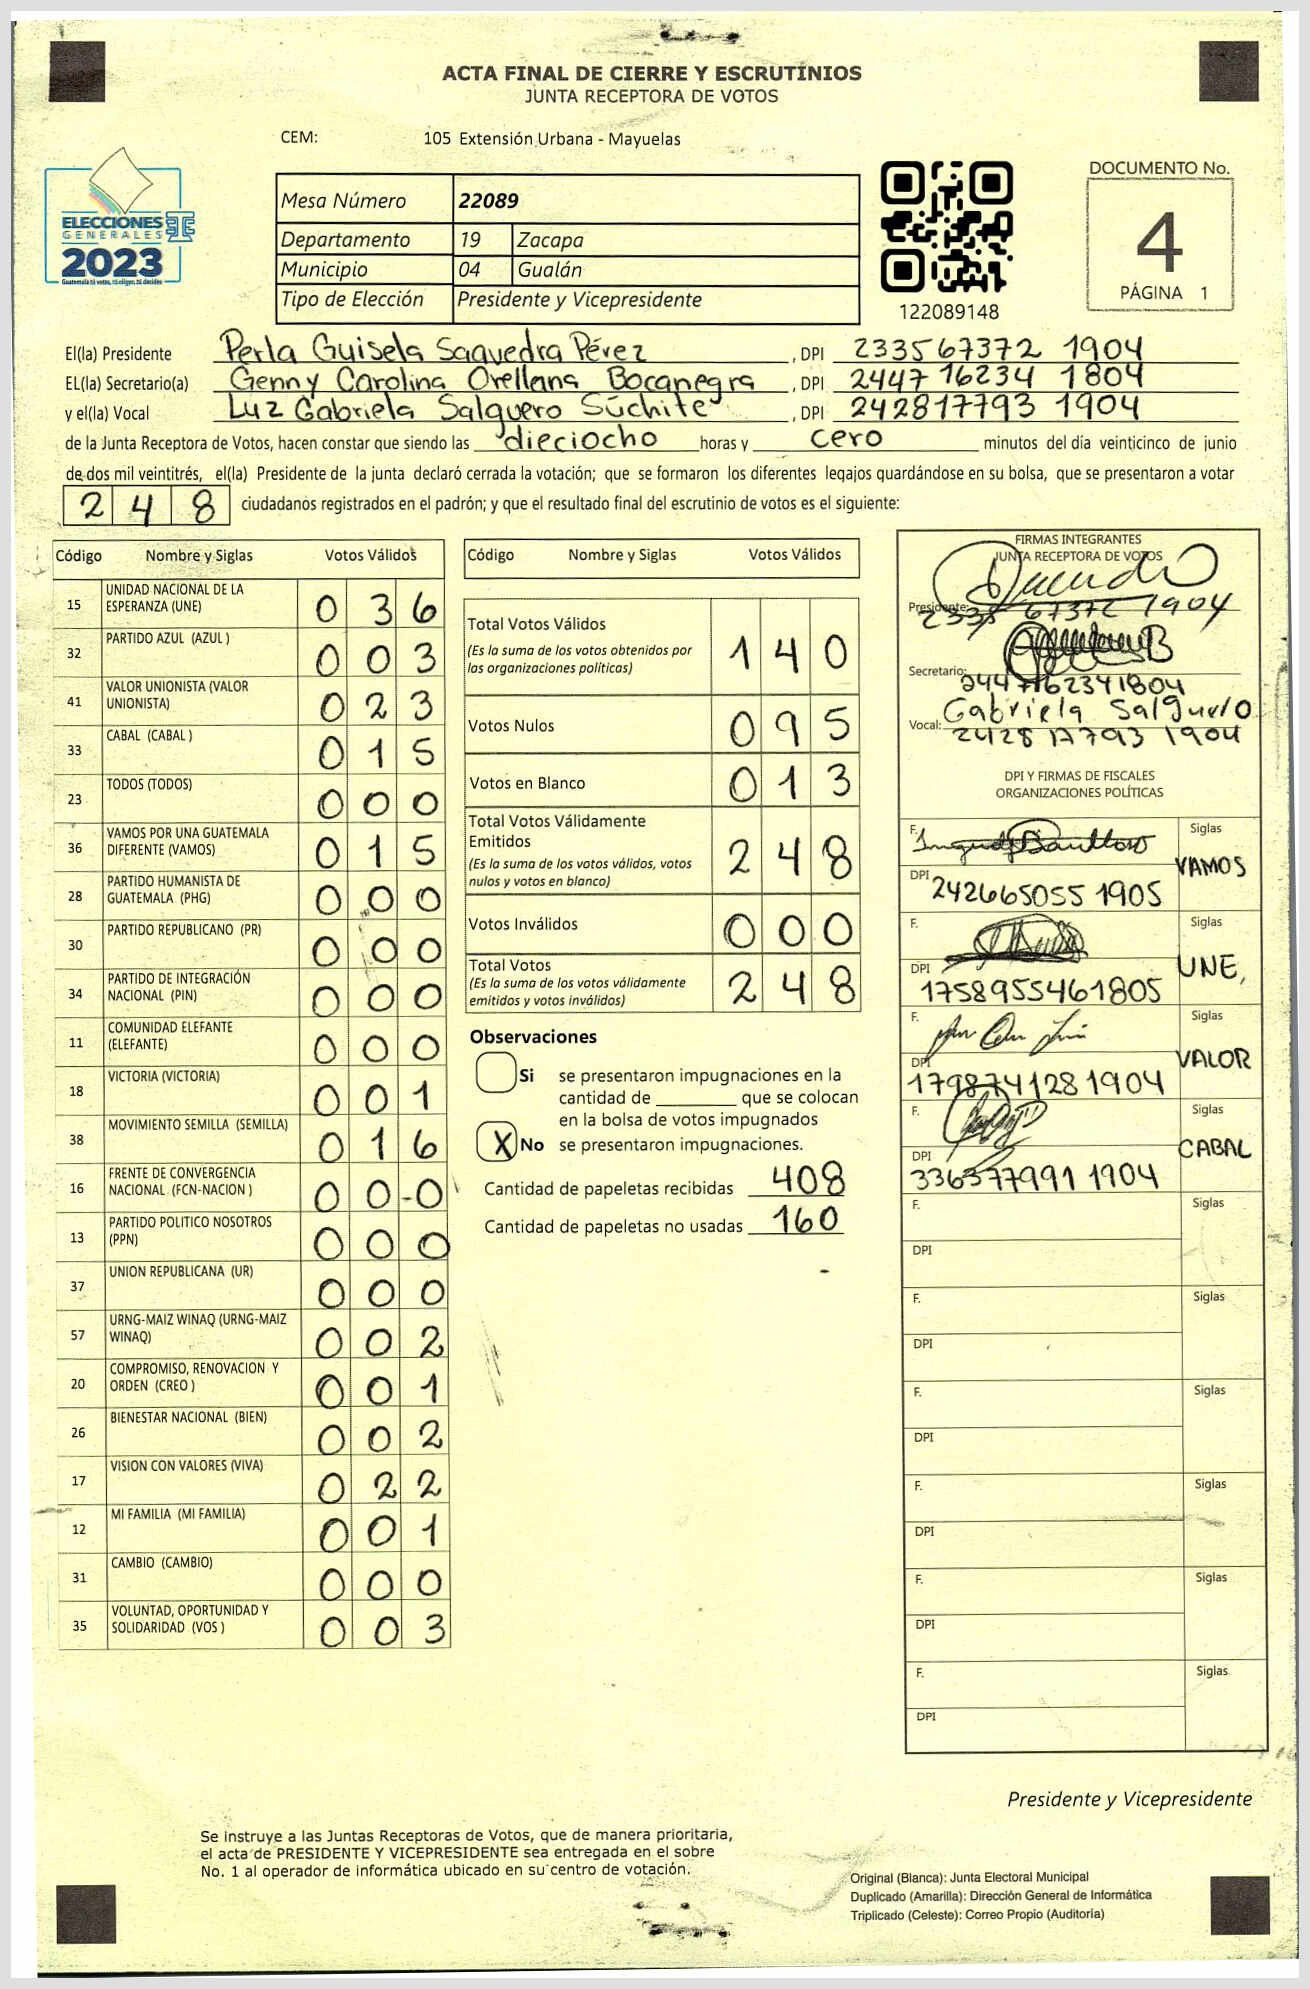 ACTA FINAL DE CIERRE Y ESCRUTINIOS
JUNTA RECEPTORA DE VOTOS
CEM: 105 Extensión Urbana - Mayuelas
ELECCIONES
GENERALES
2023
Guatemala tú votas, tú eliges, tú decides
TSE
Mesa Número 22089
Departamento 19 Zacapa
Municipio 04 Gualán
Tipo de Elección Presidente y Vicepresidente
122089148
DOCUMENTO No.
4
PÁGINA 1
El(la) Presidente Perla Guisela Saavedra Pérez , DPI 233567372 1904
EL(la) Secretario(a) Genny Carolina Orellana Bocanegra , DPI 2447 16234 1804
y el(la) Vocal Luz Gabriela Salguero Súchite , DPI 242817793 1904
de la Junta Receptora de Votos, hacen constar que siendo las dieciocho horas y cero minutos del día veinticinco de junio
de dos mil veintitrés, el(la) Presidente de la junta declaró cerrada la votación; que se formaron los diferentes legajos quardándose en su bolsa, que se presentaron a votar
248 ciudadanos registrados en el padrón; y que el resultado final del escrutinio de votos es el siguiente:
Código Nombre y Siglas Votos Válidos
15 UNIDAD NACIONAL DE LA ESPERANZA (UNE) 036
32 PARTIDO AZUL (AZUL ) 003
41 VALOR UNIONISTA (VALOR UNIONISTA) 023
33 CABAL (CABAL ) 015
23 TODOS (TODOS) 000
36 VAMOS POR UNA GUATEMALA DIFERENTE (VAMOS) 015
28 PARTIDO HUMANISTA DE GUATEMALA (PHG) 000
30 PARTIDO REPUBLICANO (PR) 000
34 PARTIDO DE INTEGRACIÓN NACIONAL (PIN) 000
11 COMUNIDAD ELEFANTE (ELEFANTE) 000
18 VICTORIA (VICTORIA) 001
38 MOVIMIENTO SEMILLA (SEMILLA) 016
16 FRENTE DE CONVERGENCIA NACIONAL (FCN-NACION ) 00-0
13 PARTIDO POLITICO NOSOTROS (PPN) 000
37 UNION REPUBLICANA (UR) 000
57 URNG-MAIZ WINAQ (URNG-MAIZ WINAQ) 002
20 COMPROMISO, RENOVACION Y ORDEN (CREO ) 001
26 BIENESTAR NACIONAL (BIEN) 002
17 VISION CON VALORES (VIVA) 022
12 MI FAMILIA (MI FAMILIA) 001
31 CAMBIO (CAMBIO) 000
35 VOLUNTAD, OPORTUNIDAD Y SOLIDARIDAD (VOS ) 003
Código Nombre y Siglas Votos Válidos
Total Votos Válidos 140
(Es la suma de los votos obtenidos por
las organizaciones políticas)
Votos Nulos 095
Votos en Blanco 013
Total Votos Válidamente
Emitidos 248
(Es la suma de los votos válidos, votos
nulos y votos en blanco)
Votos Inválidos 000
Total Votos 248
(Es la suma de los votos válidamente
emitidos y votos inválidos)
Observaciones
Si se presentaron impugnaciones en la
cantidad de ________ que se colocan
en la bolsa de votos impugnados
X No se presentaron impugnaciones.
Cantidad de papeletas recibidas 408
Cantidad de papeletas no usadas 160
FIRMAS INTEGRANTES
JUNTA RECEPTORA DE VOTOS
Presidente:
2335 67372 1904
Secretario:
2447162341804
Vocal: Gabriela Salguero
2428 17793 1904
DPI Y FIRMAS DE FISCALES
ORGANIZACIONES POLÍTICAS
F. Siglas
VAMOS
DPI 242665055 1905
F. Siglas
UNE,
DPI 1758955461805
F. Siglas
VALOR
DPI 179874128 1904
F. Siglas
CABAL
DPI 336377991 1904
F. Siglas
DPI
F. Siglas
DPI
F. Siglas
DPI
F. Siglas
DPI
F. Siglas
DPI
F. Siglas
DPI
Presidente y Vicepresidente
Se instruye a las Juntas Receptoras de Votos, que de manera prioritaria,
el acta de PRESIDENTE Y VICEPRESIDENTE sea entregada en el sobre
No. 1 al operador de informática ubicado en su centro de votación.
Original (Blanca): Junta Electoral Municipal
Duplicado (Amarilla): Dirección General de Informática
Triplicado (Celeste): Correo Propio (Auditoría)